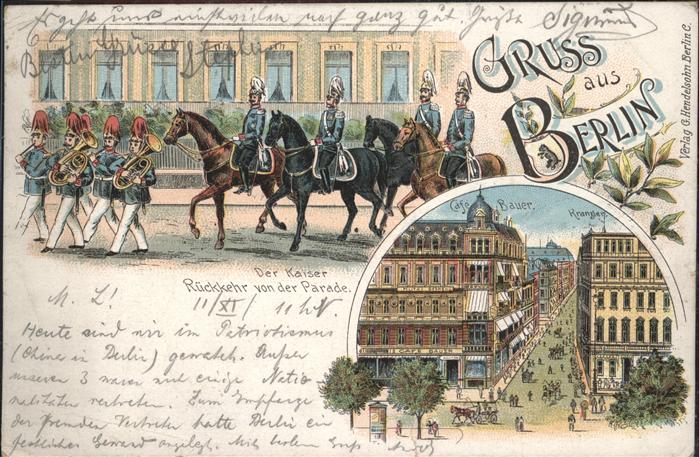 Es geht uns einstweilen noch ganz gut. Grüße Sigmund
GRUSS
aus
BERLIN
Verlag G. Hendelsohn Berlin C.
Café Bauer.
Kranzler.
CAFÉ BAUER
Der Kaiser
Rückkehr von der Parade.
M. L!
11/XI 11 h V
Heute sind wir im Patriotismus
(Chines in Berlin) gewatet. Außer
unseren 3 waren nur einige Natio
nalitäten vertreten. Zum Empfange
der fremden Vertreter hatte Berlin ein
festliches Gewand angelegt. Mit bestem Gruß